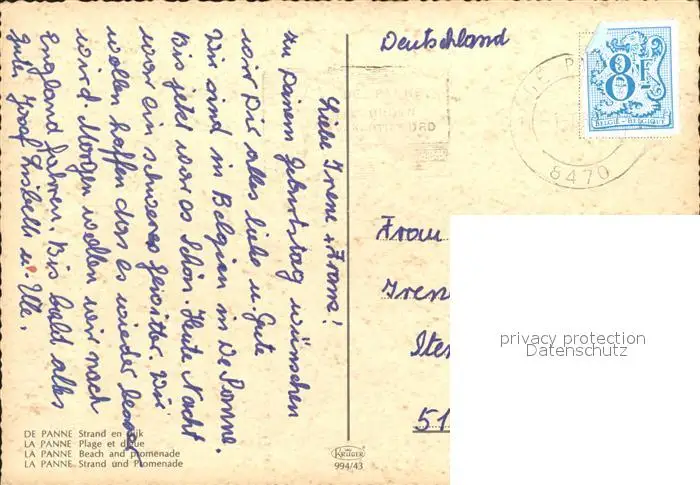 Liebe Irene + Franz!
zu Deinem Geburtstag wünschen
wir Dir alles liebe u. Gute
Wir sind in Belgien in De Panne.
Bis jetzt war es Schön. Heute Nacht
war ein schweres gewitter. Wir
wollen hoffen das es wieder besser
wird Morgen wollen wir nach
England fahren. Bis bald alles
gute Josef Lisbeth u. Ute.
Deutschland
8 F
BELGIË-BELGIQUE
DE PANNE
8470
Frau
Iren
Ste
51
privacy protection
Datenschutz
DE PANNE Strand en dijk
LA PANNE Plage et digue
LA PANNE Beach and promenade
LA PANNE Strand und Promenade
KRÜGER
994/43